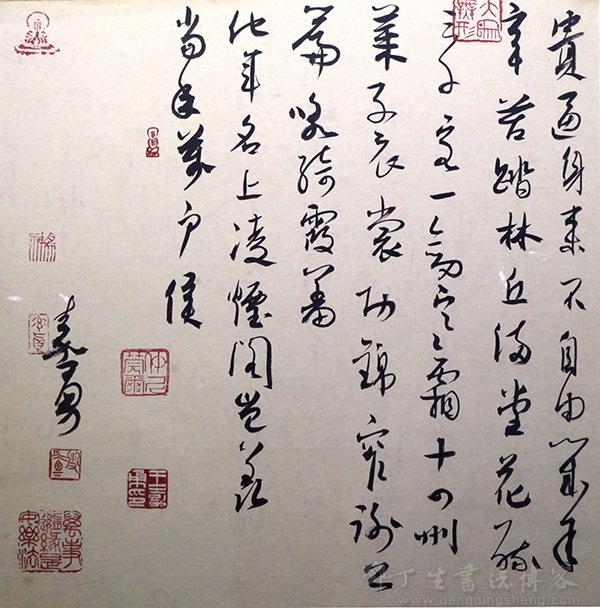 貴逼身来不自由幾年
辛苦踏林丘满堂花醉
三千客一劍寒霜十四州
莱子衣裳宫錦窄謝公
篇咏綺霞羞
他年名上凌煙閣豈羨
当年萬户侯
丁生書法博客
www.dengdingsheng.com